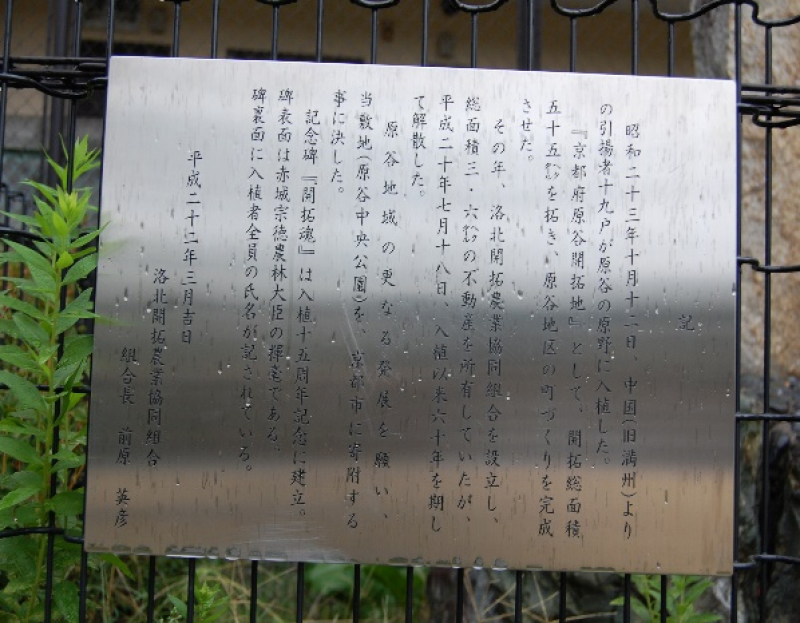 記
昭和二十三年十月十二日、中国(旧満州)より
の引揚者十九戸が原谷の原野に入植した。
『京都府原谷開拓地』として、開拓総面積
五十五㌶を拓き、原谷地区の町づくりを完成
させた。
その年、洛北開拓農業協同組合を設立し、
総面積三・六㌶の不動産を所有していたが、
平成二十年七月十八日、入植以来六十年を期し
て解散した。
原谷地域の更なる発展を願い、
当敷地(原谷中央公園)を、京都市に寄附する
事に決した。
記念碑『開拓魂』は入植十五周年記念に建立。
碑表面は赤城宗徳農林大臣の揮毫である、
碑裏面に入植者全員の氏名が記されている。
平成二十二年三月吉日
洛北開拓農業協同組合
組合長 前原 英彦